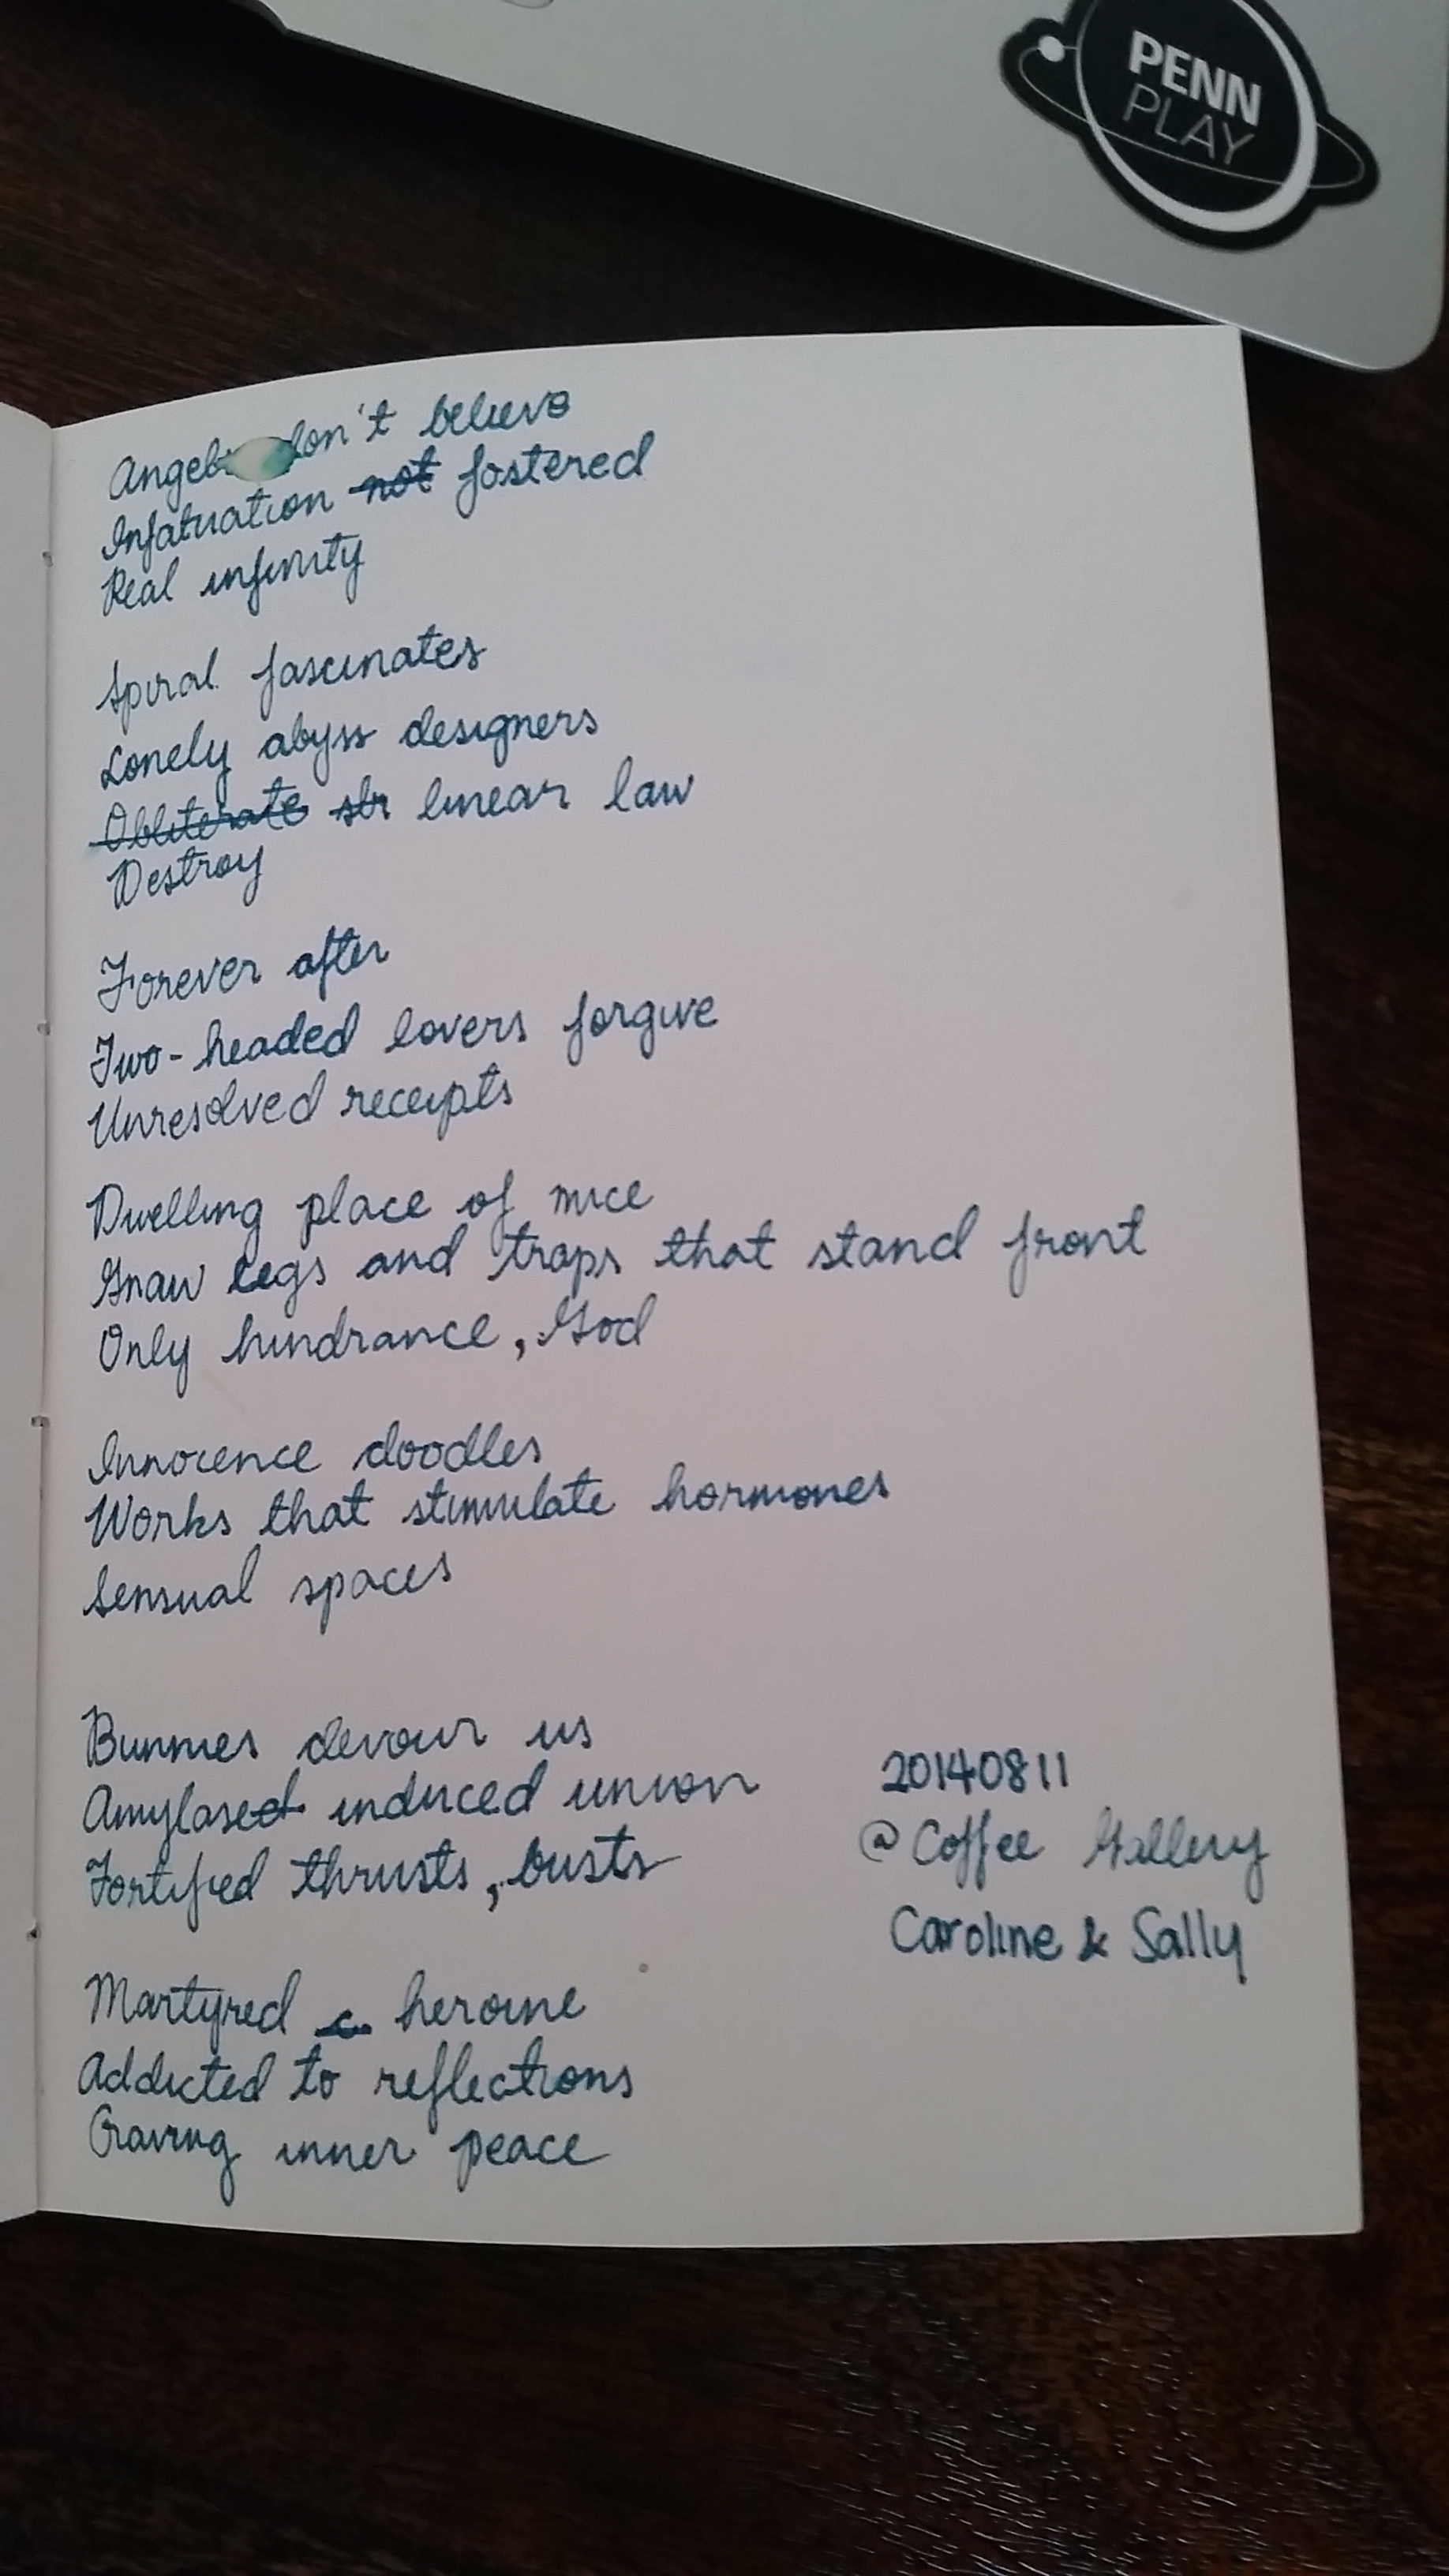 PENN
PLAY
Angels don't believe
Infatuation not fostered
Real infinity
Spiral fascinates
Lonely abyss designers
Obliterate str linear law
Destroy
Forever after
Two-headed lovers forgive
Unresolved receipts
Dwelling place of mice
Gnaw legs and traps that stand front
Only hindrance, God
Innocence doodles
Works that stimulate hormones
Sensual spaces
Bunnies devour us
Amylased induced union
Fortified thrusts, busts
20140811
@ Coffee Gallery
Caroline & Sally
Martyred heroine
Addicted to reflections
Craving inner peace